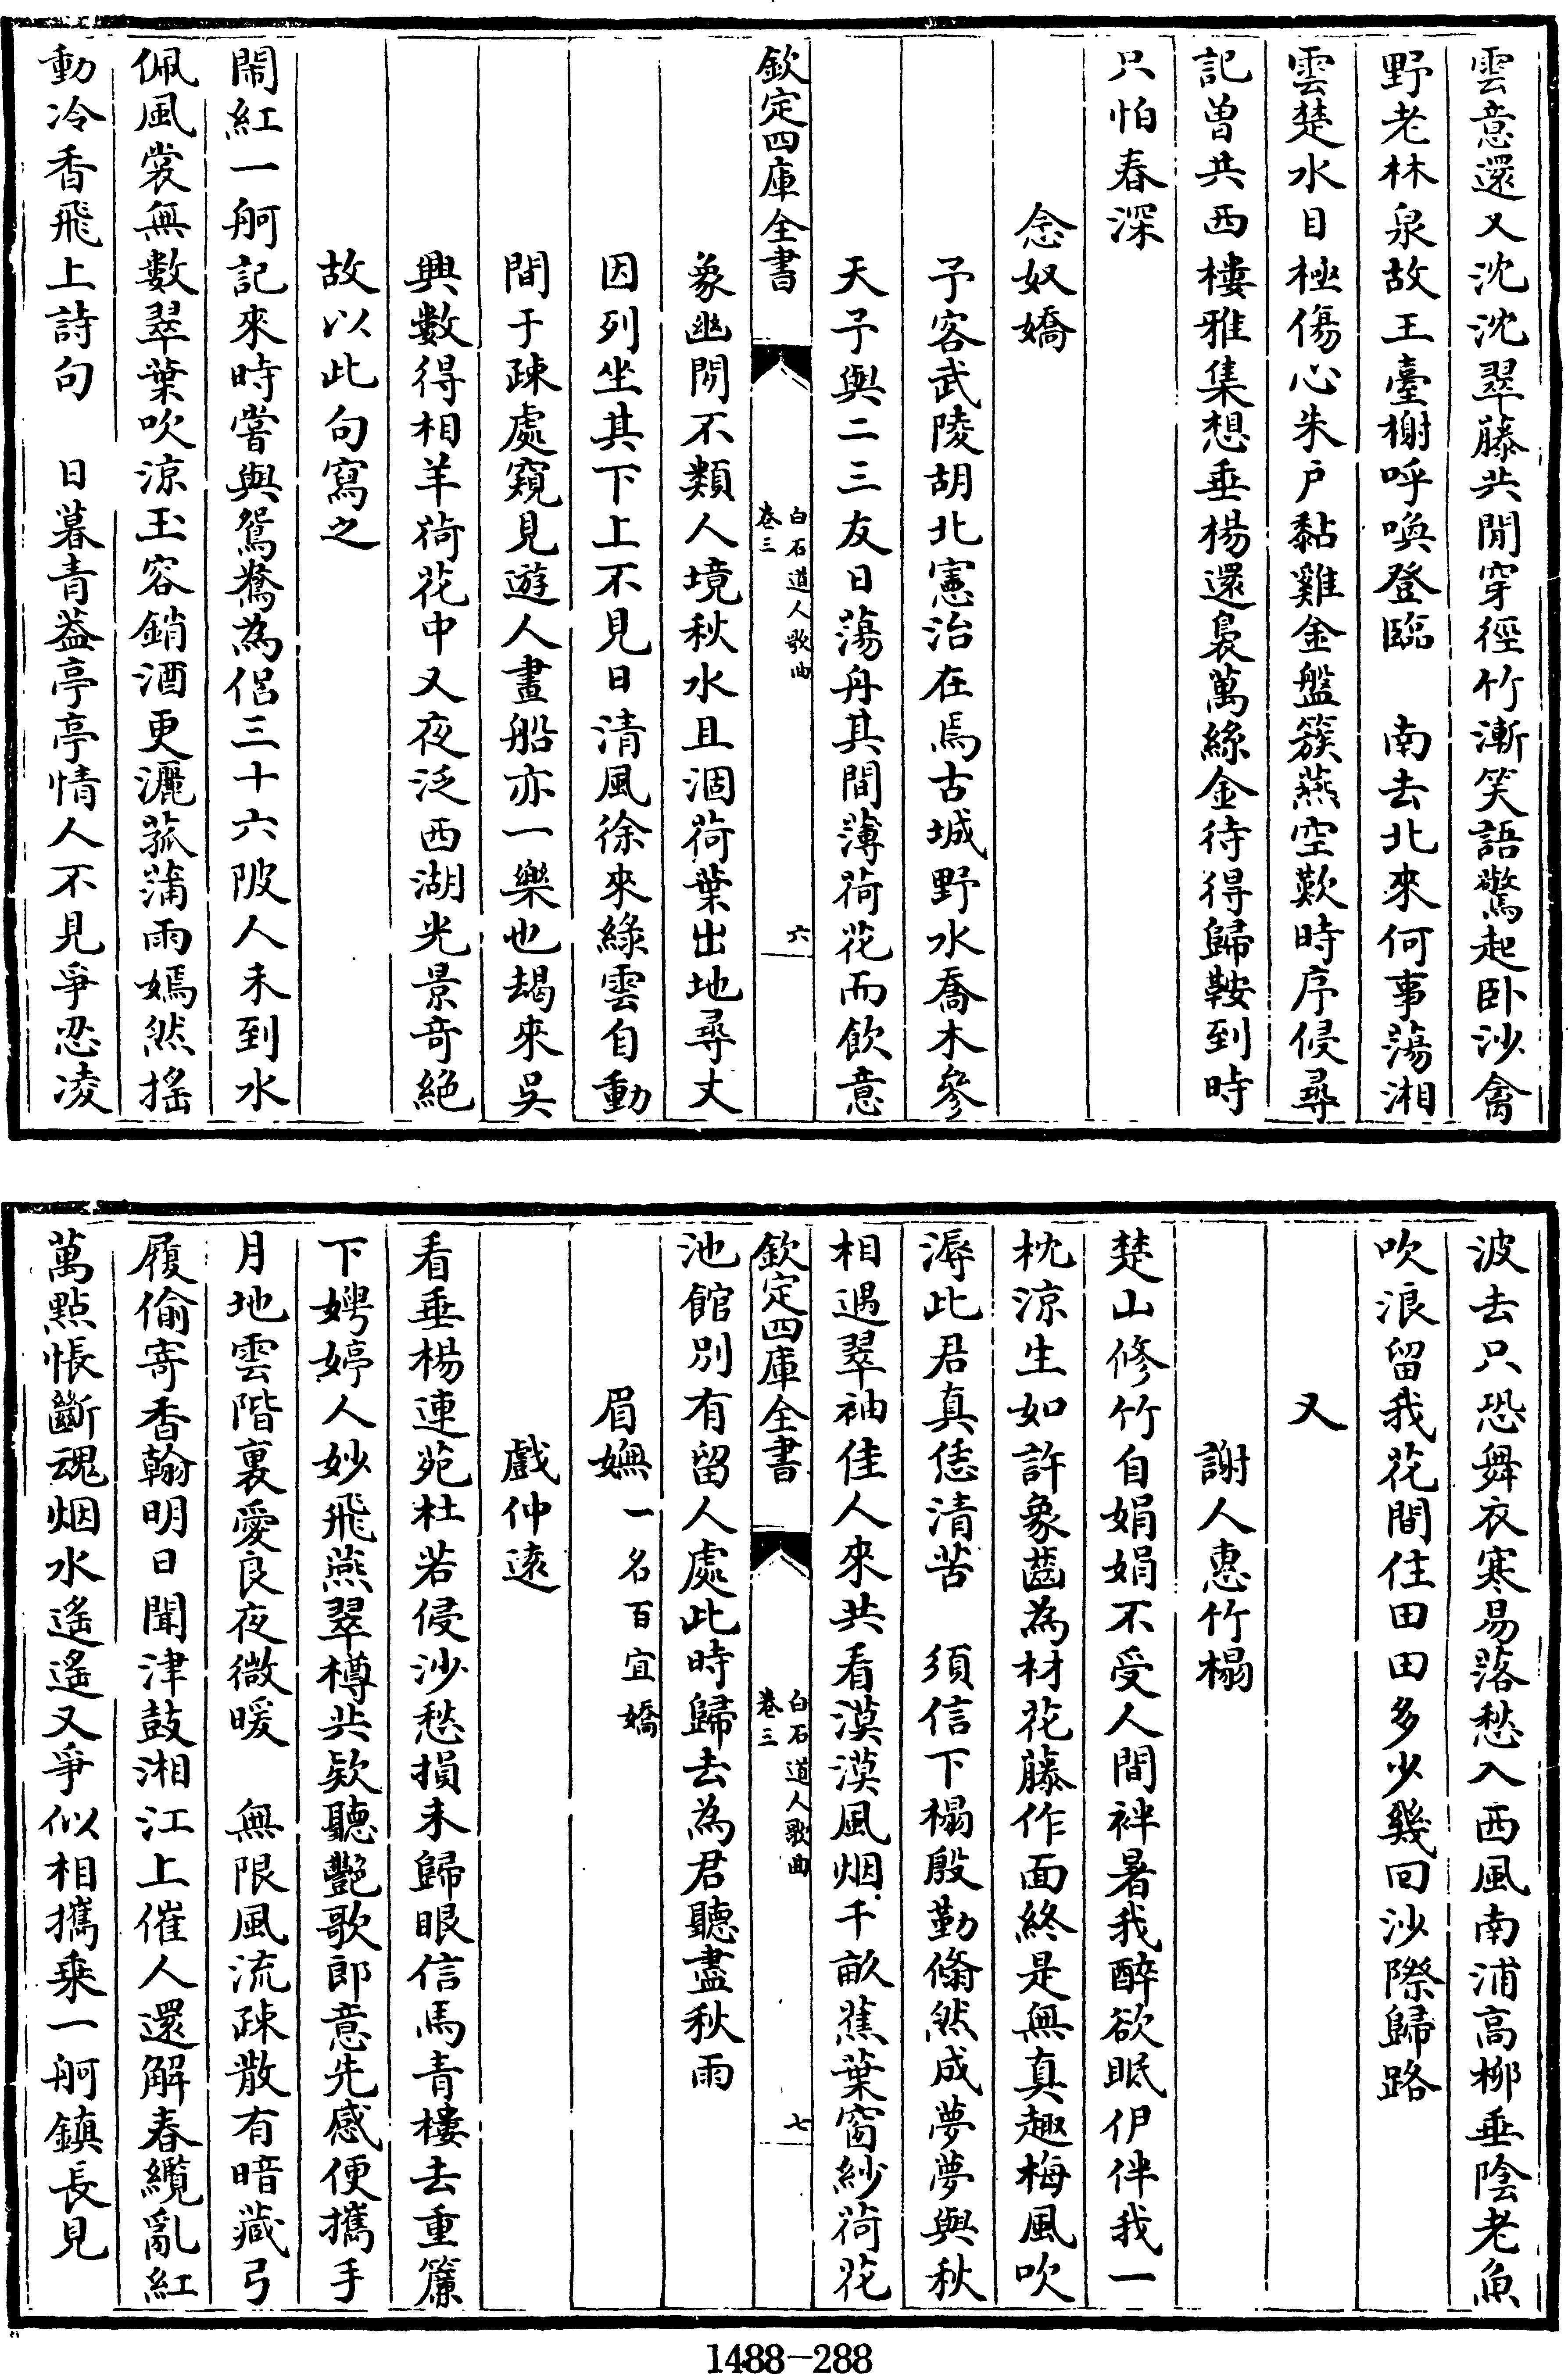 雲意還又沈沈翠藤共閒穿徑竹漸笑語驚起卧沙禽
野老林泉故王臺榭呼喚登臨　南去北來何事蕩湘
雲楚水目極傷心朱户黏雞金盤簇燕空歎時序侵尋
記曾共西樓雅集想垂楊還裊萬絲金待得歸鞍到時
只怕春深
念奴嬌
予客武陵胡北憲治在焉古城野水喬木參
天予與二三友日蕩舟其間薄荷花而飲意
欽定四庫全書
白石道人歌曲
卷三
六
象幽閒不類人境秋水且涸荷葉出地尋丈
因列坐其下上不見日清風徐來綠雲自動
間于疎處窺見遊人畫船亦一樂也朅來吳
興數得相羊荷花中又夜泛西湖光景奇絕
故以此句寫之
鬧紅一舸記來時嘗與鴛鴦為侣三十六陂人未到水
佩風裳無數翠葉吹涼玉容銷酒更灑菰蒲雨嫣然搖
動冷香飛上詩句　日暮青葢亭亭情人不見爭忍凌
波去只恐舞衣寒易落愁入西風南浦高柳垂陰老魚
吹浪留我花間住田田多少幾回沙際歸路
又
謝人惠竹榻
楚山修竹自娟娟不受人間袢暑我醉欲眠伊伴我一
枕涼生如許象齒為材花藤作面終是無真趣梅風吹
溽此君真恁清苦　須信下榻殷勤翛然成夢夢與秋
相遇翠袖佳人來共看漠漠風烟千畝蕉葉窗紗荷花
欽定四庫全書
白石道人歌曲
卷三
七
池館別有留人處此時歸去為君聽盡秋雨
眉嫵一名百宜嬌
戲仲遠
看垂楊連苑杜若侵沙愁損未歸眼信馬青樓去重簾
下娉婷人妙飛燕翠樽共欵聽艷歌郎意先感便攜手
月地雲階裏愛良夜微暖　無限風流疎散有暗藏弓
履偷寄香翰明日聞津鼓湘江上催人還解春纜亂紅
萬點悵斷魂烟水遙遙又爭似相攜乗一舸鎮長見
1488-288